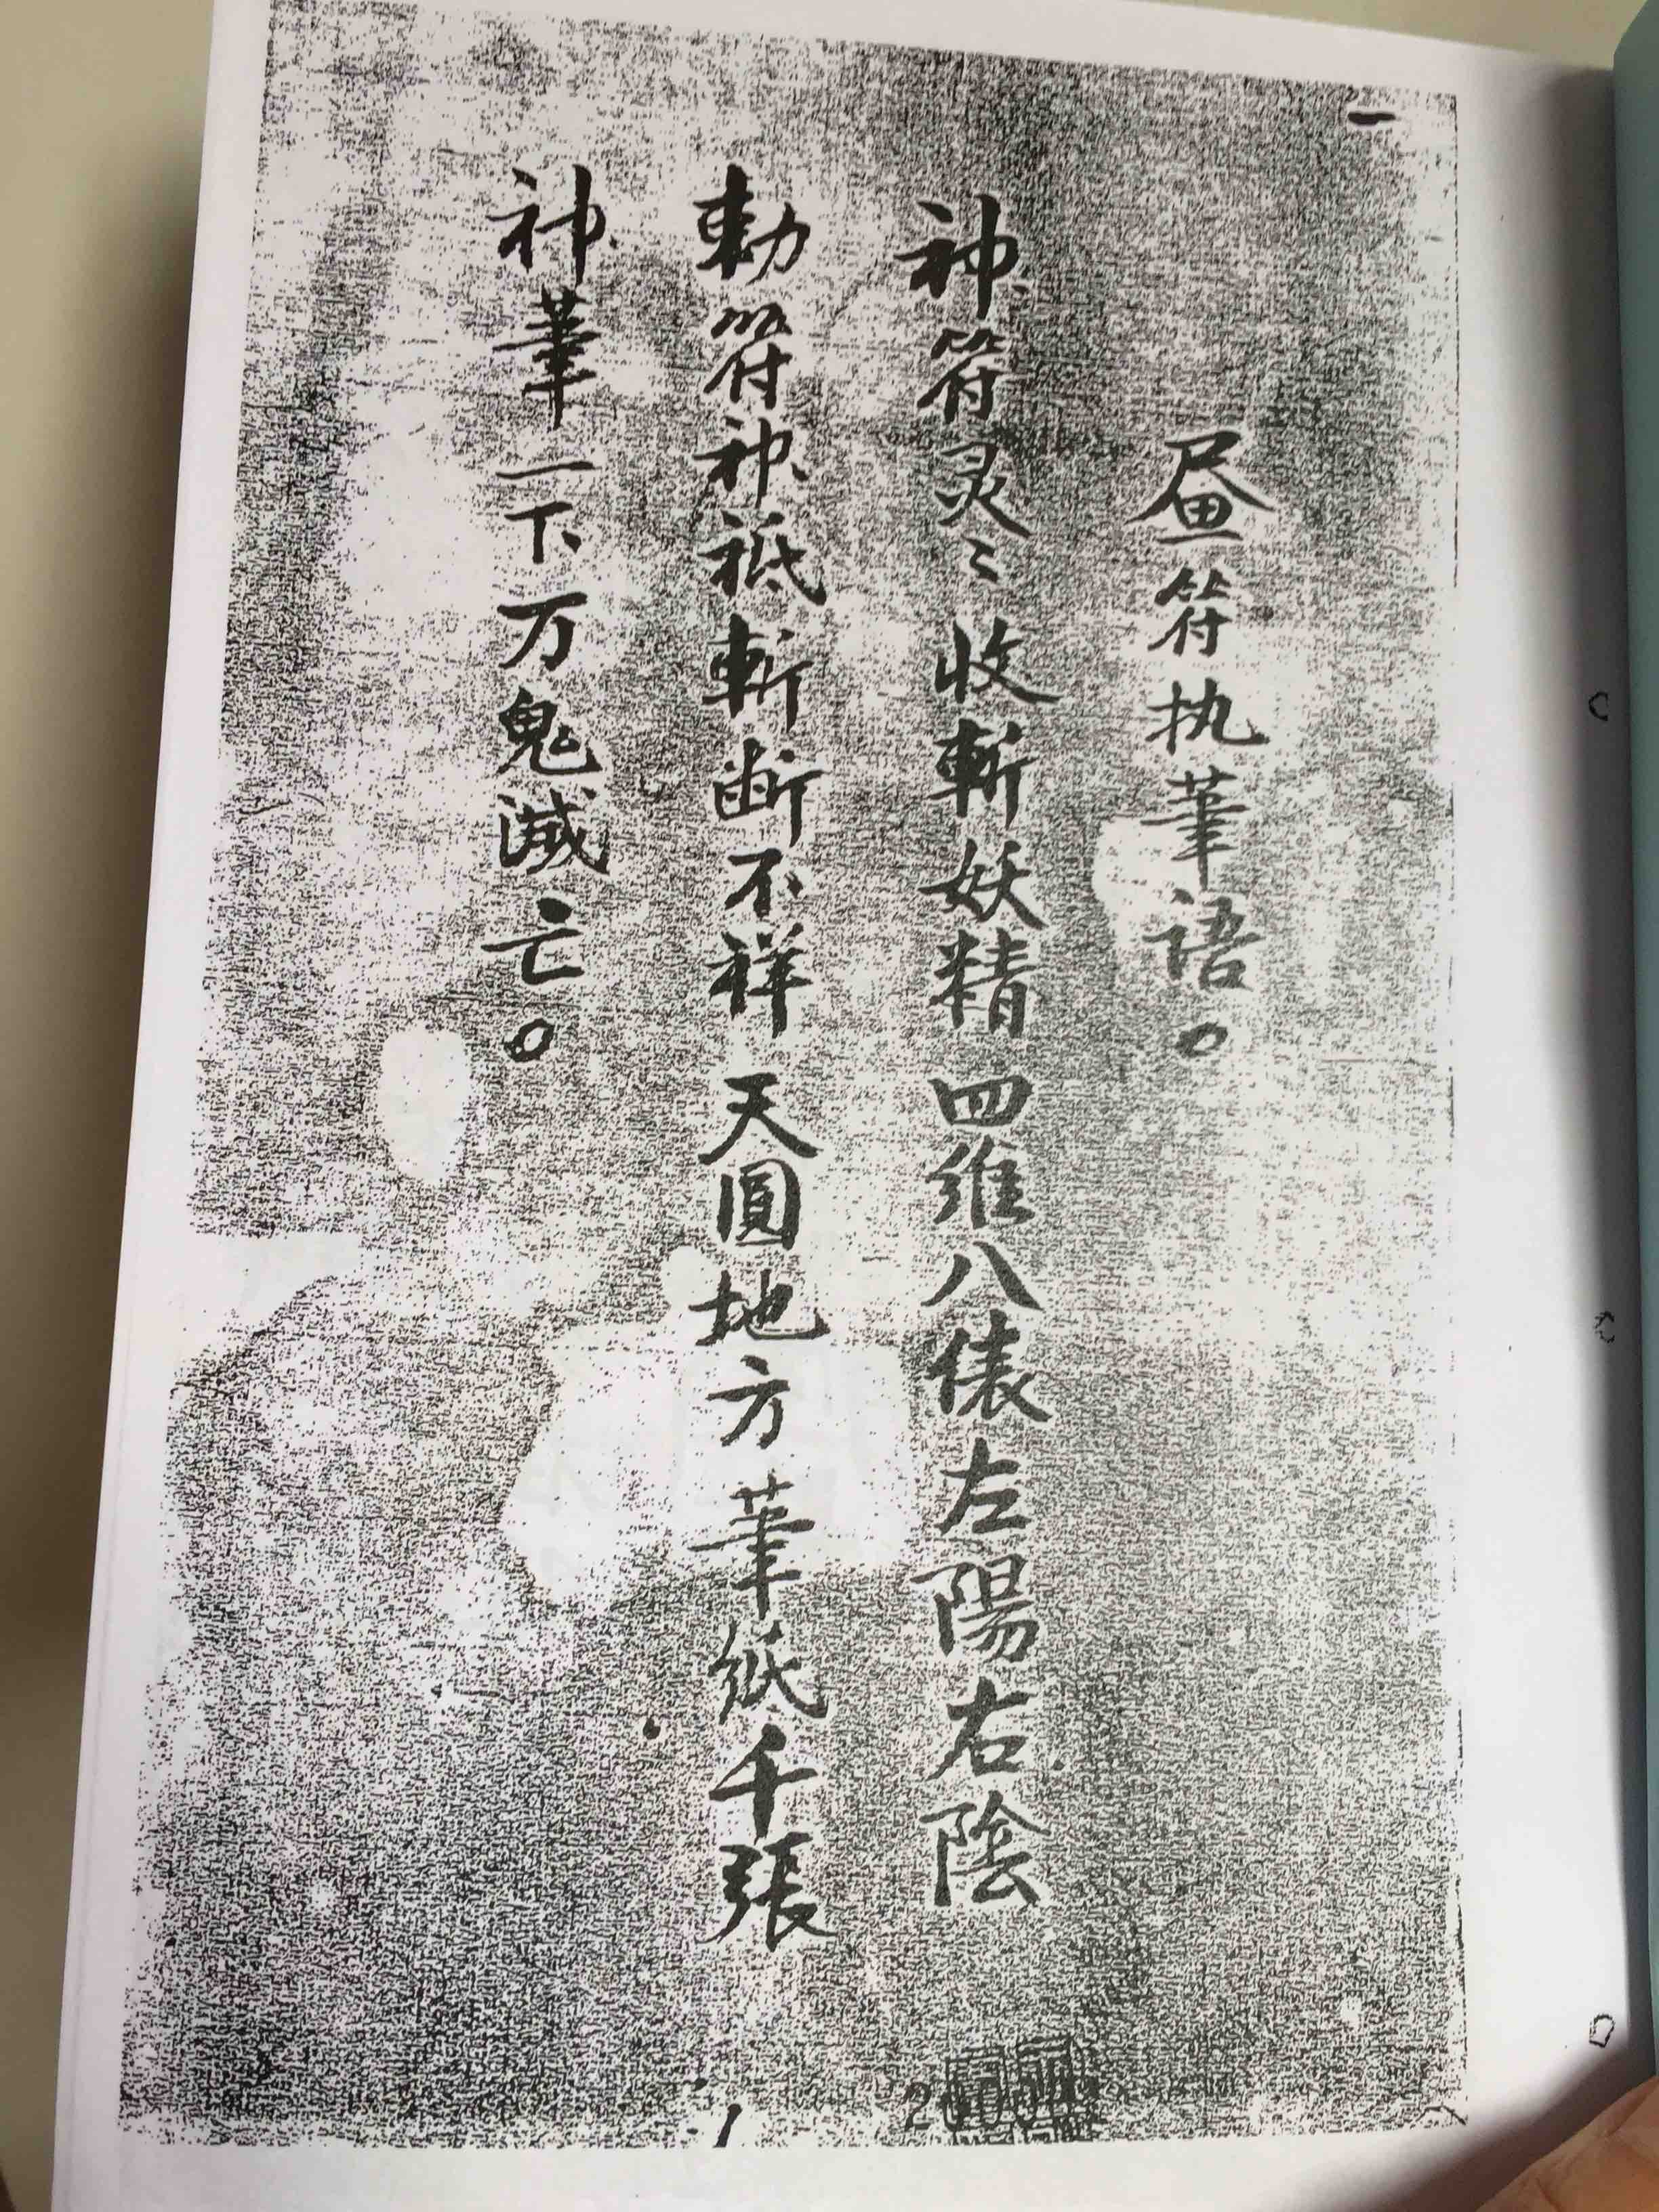 一
昼符执筆語。
神符灵〻收斬妖精四维八俵左陽右陰
勅符神祗斬断不祥天圓地方筆紙千張
神筆一下万鬼滅亡。